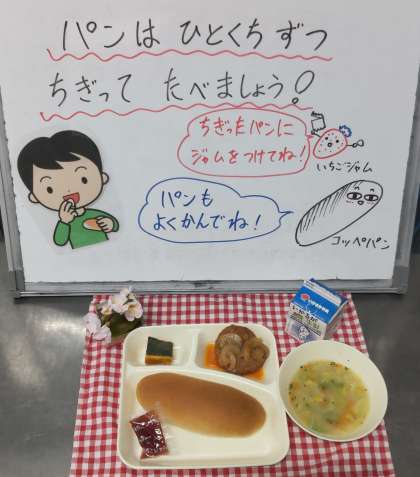 パンは ひとくちずつ
ちぎって たべましょう!
ちぎったパンに
ジャムをつけてね!
いちごジャム
パンも
よくかんでね!
コッペパン